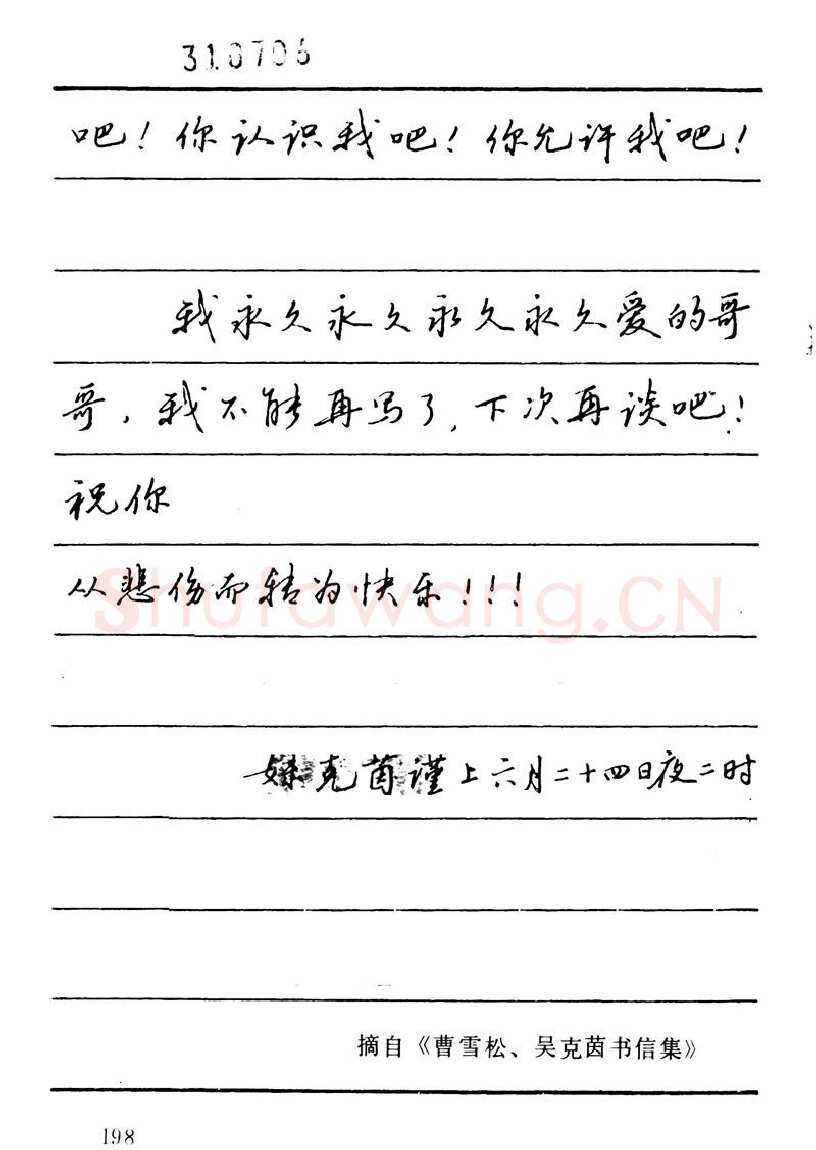 310706
吧！你认识我吧！你允许我吧！
我永久永久永久永久爱的哥
哥，我不能再写了，下次再谈吧！
祝你
从悲伤而转为快乐！！！
Shufawang.CN
妹克茵谨上六月二十四日夜二时
摘自《曹雪松、吴克茵书信集》
198